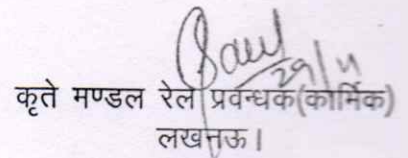 29/11
कृते मण्डल रेल प्रवन्धक(कार्मिक)
लखनऊ।